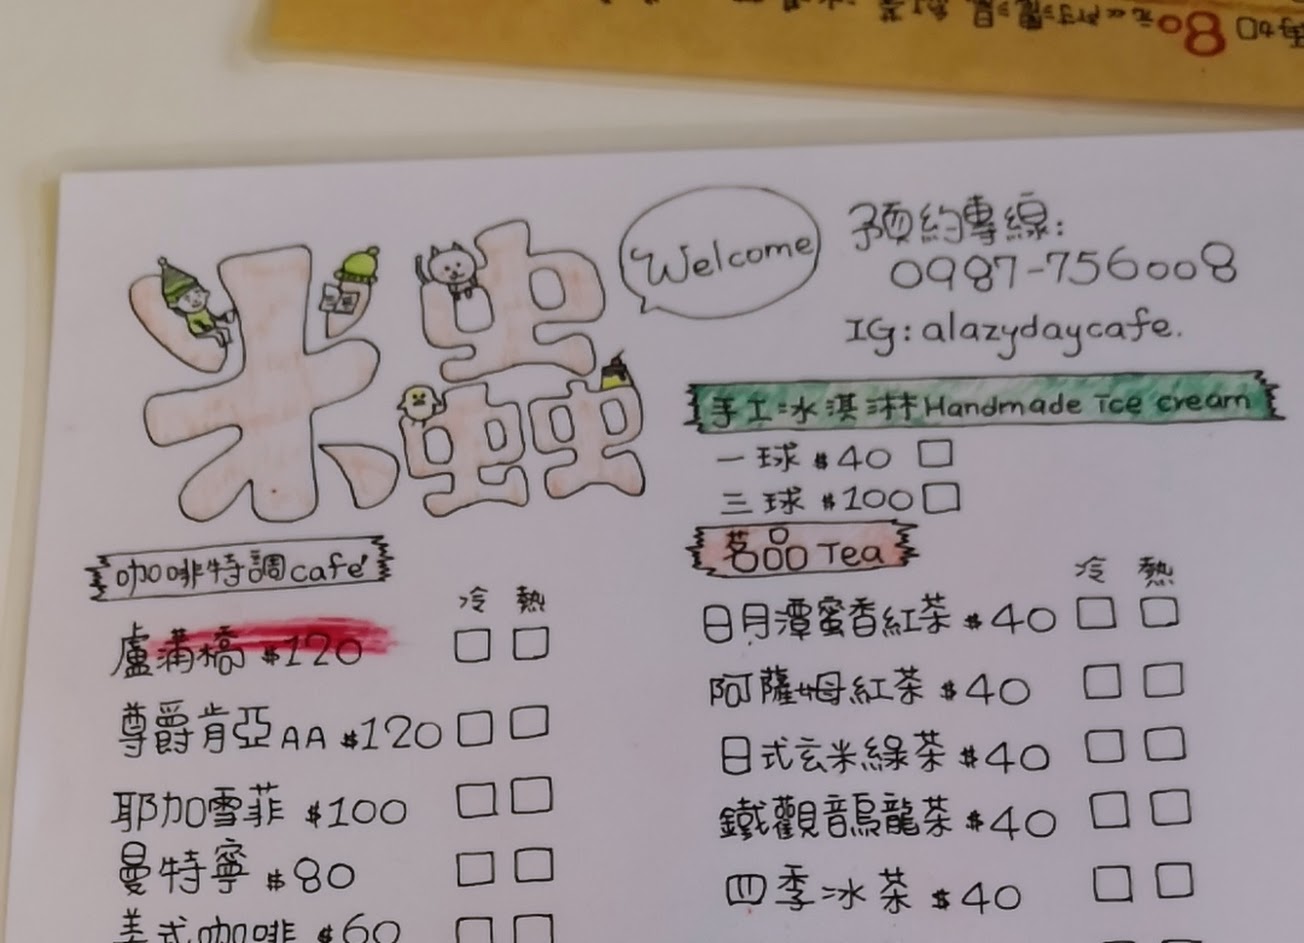 80
米蟲
Welcome
預約專線:
0987-756008
IG: alazydaycafe.
手工冰淇淋 Handmade ice cream
一球 $40
三球 $100
咖啡特調 café
冷 熱
盧滿橋 $120
尊爵肯亞AA $120
耶加雪菲 $100
曼特寧 $80
美式咖啡 $60
茗品 Tea
冷 熱
日月潭蜜香紅茶 $40
阿薩姆紅茶 $40
日式玄米綠茶 $40
鐵觀音烏龍茶 $40
四季冰茶 $40